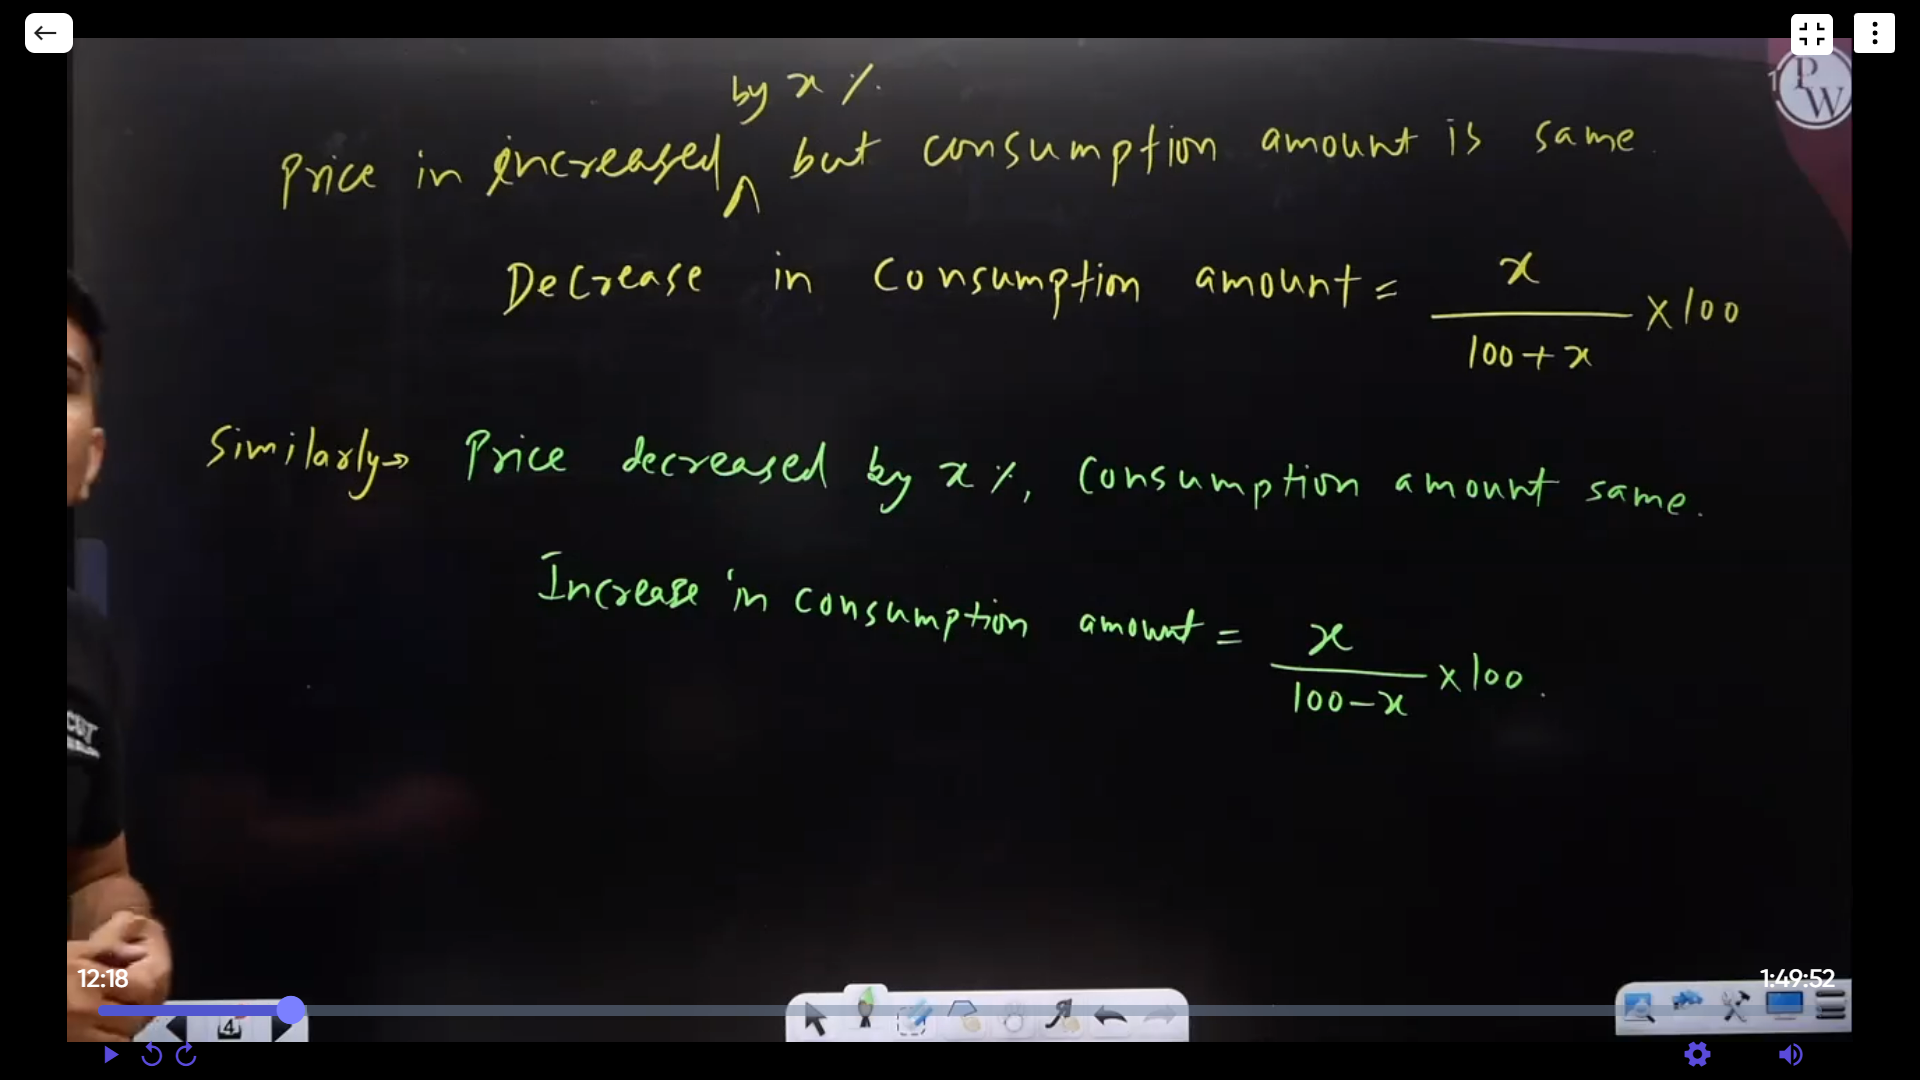 by x %
Price in increased ∧ but consumption amount is same.
Decrease in consumption amount = x / 100 + x × 100
Similarly → Price decreased by x %, Consumption amount same.
Increase in consumption amount = x / 100 - x × 100.
PW
12:18
1:49:52
4